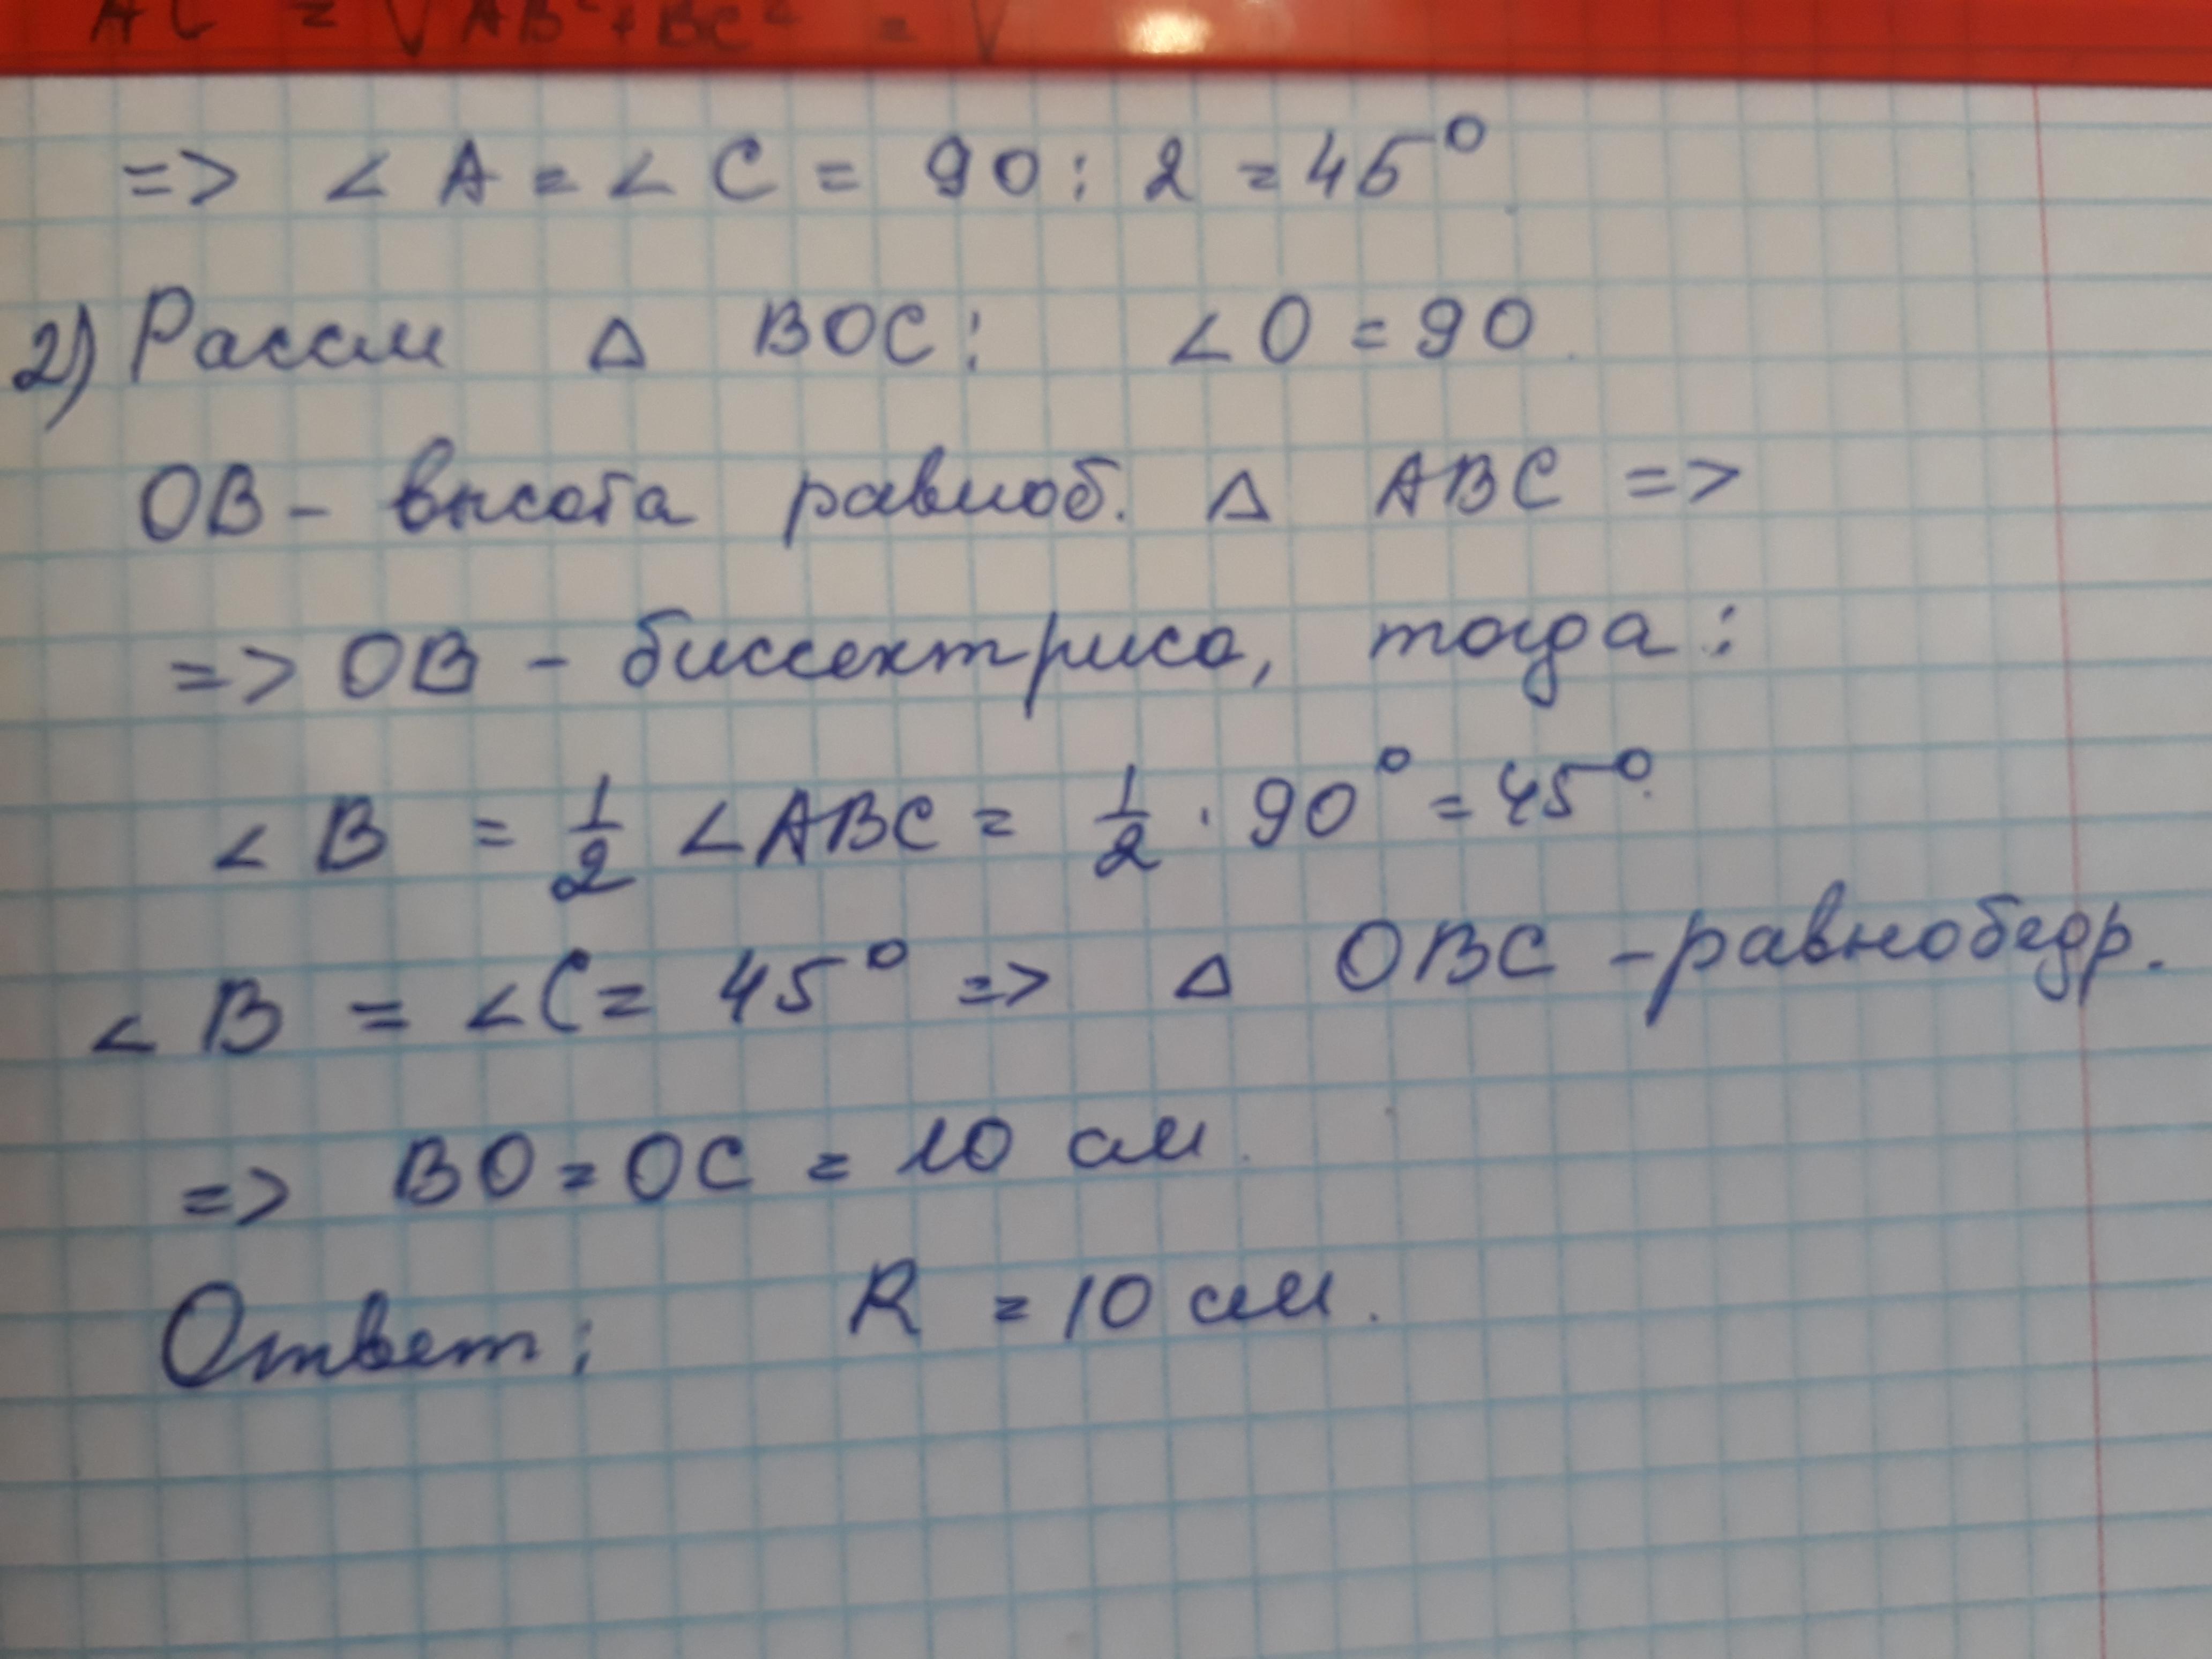 AC = √AB²+BC² = √
=> ∠ A = ∠ C = 90 : 2 = 45°
2) Рассм Δ BOC: ∠O = 90
OB - высота равноб. Δ ABC =>
=> OB - биссектриса, тогда:
∠ B = 1/2 ∠ABC = 1/2 · 90° = 45°
∠ B = ∠C = 45° => Δ OBC - равнобедр.
=> BO = OC = 10 см.
Ответ: R = 10 см.